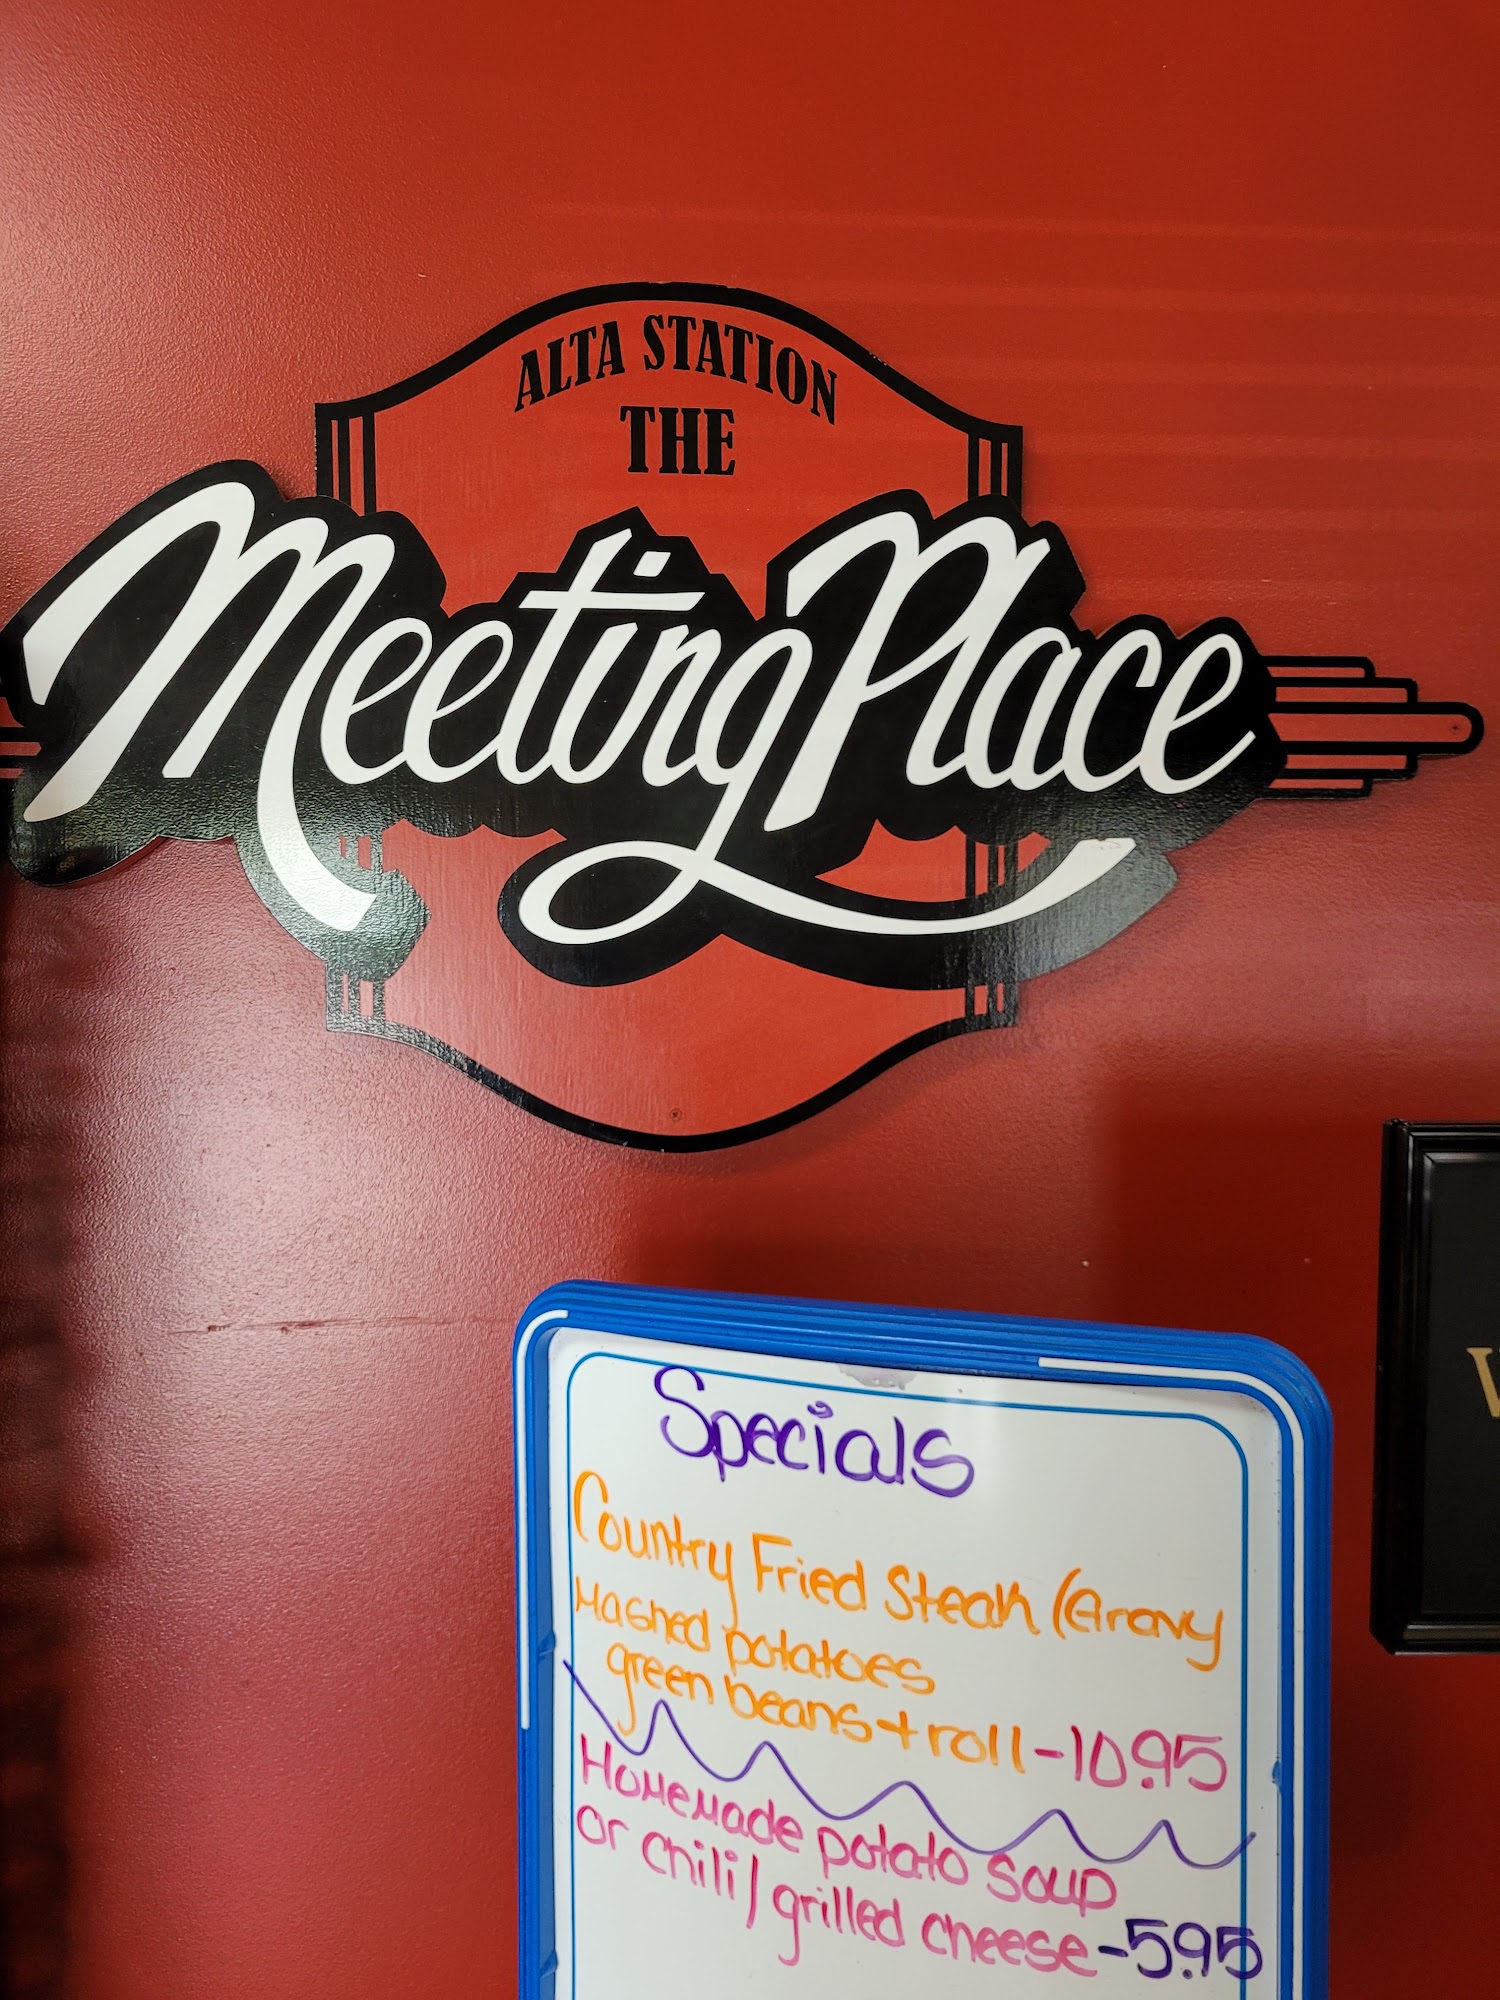 ALTA STATION
THE
Meeting Place
Specials
Country Fried Steak (Gravy
Mashed potatoes
green beans + roll - 10.95
Homemade potato soup
or chili / grilled cheese - 5.95